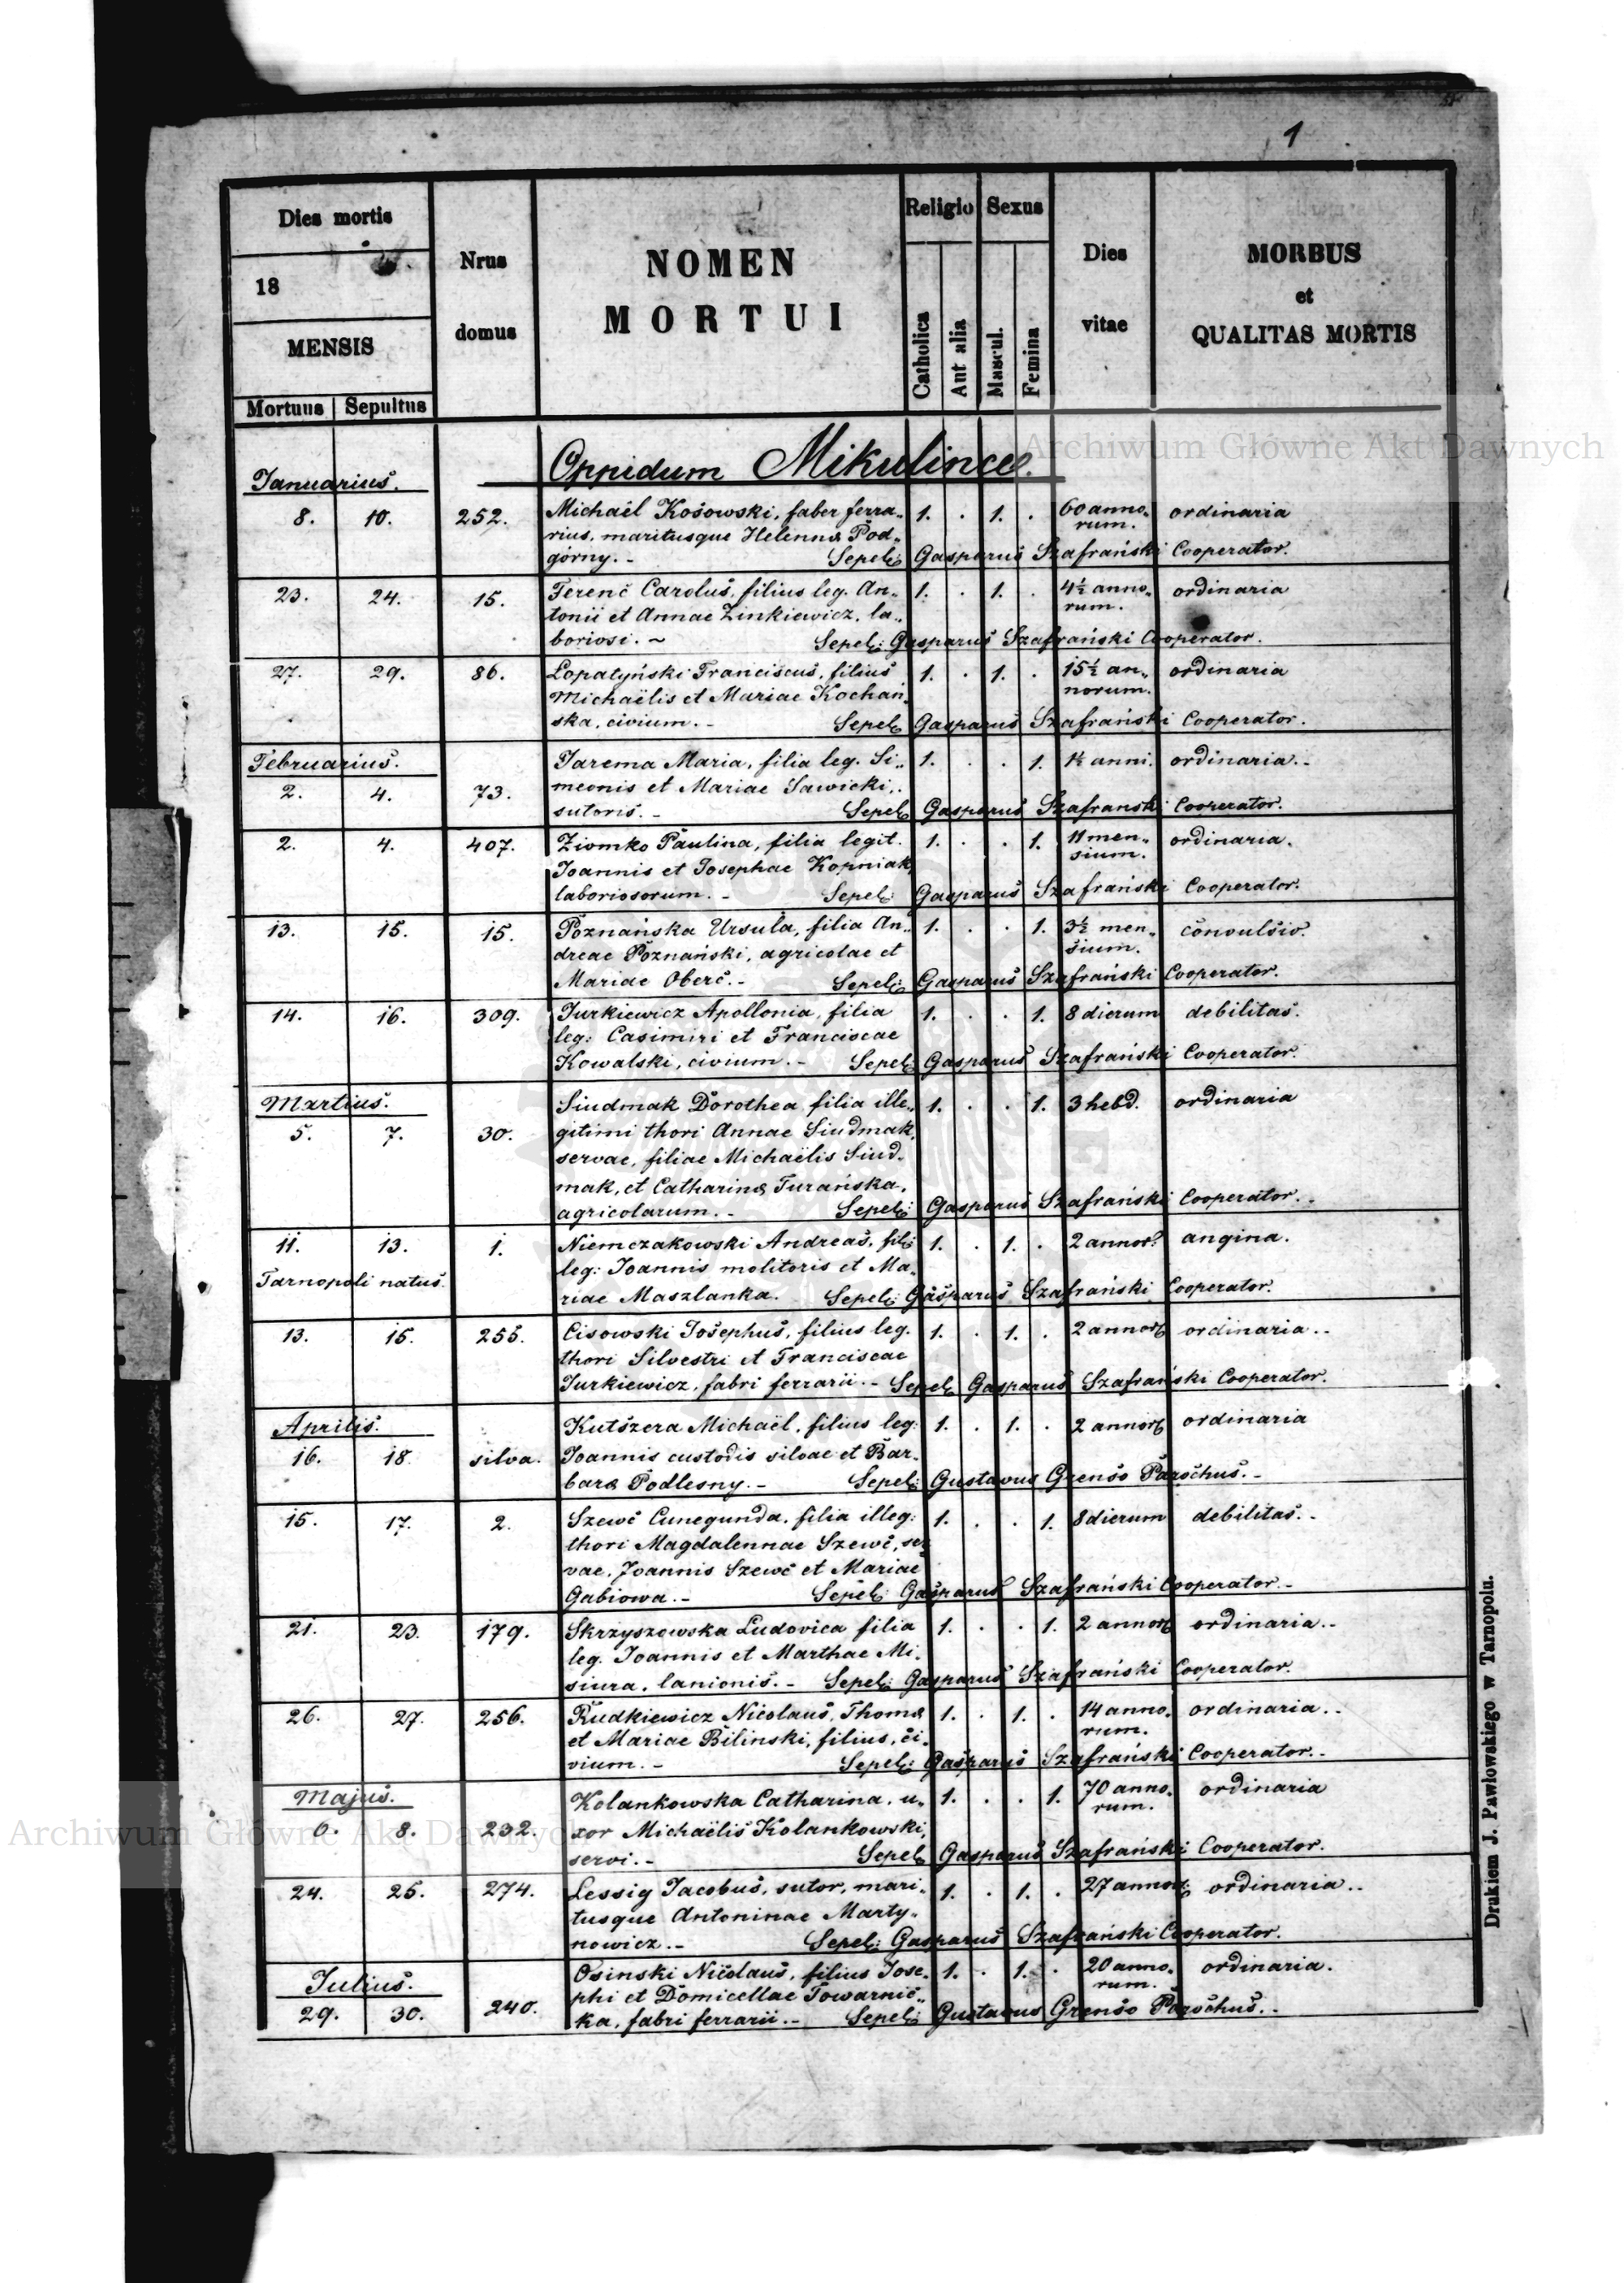 1
Dies mortis
18
MENSIS
Mortuus Sepultus
Nrus
domus
NOMEN
MORTUI
Religio
Catholica
Aut alia
Sexus
Mascul.
Femina
Dies
vitae
MORBUS
et
QUALITAS MORTIS
Oppidum Mikulince.
Januarius.
8. 10. 252. Michaël Kosowski, faber ferra„ 1. . 1. . 60 anno„ ordinaria
rius, maritusque Helenna Pod„ rum.
górny. - Sepel: Gasparus Szafrański Cooperator.
23. 24. 15. Ferenc Carolus, filius leg. An„ 1. . 1. . 4½ anno„ ordinaria
tonii et Annae Zinkiewicz, la„ rum.
boriosi. ~ Sepel: Gasparus Szafrański Cooperator.
27. 29. 86. Lopatyński Franciscus, filius 1. . 1. . 15½ an„ ordinaria
Michaëlis et Mariae Kochań norum.
ska, civium. - Sepel: Gasparus Szafrański Cooperator.
Februarius.
Jarema Maria, filia leg. Si„ 1. . . 1. 1½ anni. ordinaria. -
2. 4. 73. meonis et Mariae Sawicki,
sutoris. - Sepel: Gasparus Szafranski Cooperator.
2. 4. 407. Ziomko Paulina, filia legit. 1. . . 1. 11 men„ ordinaria.
Joannis et Josephae Kopniak, sium.
laboriosorum. - Sepel: Gasparus Szafrański Cooperator.
13. 15. 15. Poznańska Ursula, filia An„ 1. . . 1. 3½ men„ convulsio.
dreae Poznański, agricolae et sium.
Mariae Oberc. - Sepel: Gasparus Szafrański Cooperator.
14. 16. 309. Jurkiewicz Apollonia, filia 1. . . 1. 8 dierum debilitas.
leg: Casimiri et Franciscae
Kowalski, civium. - Sepel: Gasparus Szafrański Cooperator.
Martius.
Siudmak Dorothea filia ille„ 1. . . 1. 3 hebd. ordinaria
5. 7. 30. gitimi thori Annae Siudmak,
servae, filiae Michaëlis Siud„
mak, et Catharina Turańska,
agricolarum. - Sepel: Gasparus Szafrański Cooperator. -
11. 13. 1. Niemczakowski Andreas, fili 1. . 1. . 2 annor: angina.
Tarnopoli natus. leg: Joannis molitoris et Ma„
riae Maszlanka. Sepel: Gasparus Szafrański Cooperator.
13. 15. 255. Cisowski Josephus, filius leg. 1. . 1. . 2 annor: ordinaria. -
thori Silvestri et Franciscae
Jurkiewicz, fabri ferrarii. - Sepel: Gasparus Szafrański Cooperator.
Aprilis.
Kutszera Michaël, filius leg: 1. . 1. . 2 annor: ordinaria
16. 18. silva. Joannis custodis silvae et Bar„
bara Podlesny. - Sepel: Gustavus Grenso Parochus. -
15. 17. 2. Szewc Cunegunda, filia illeg: 1. . . 1. 8 dierum debilitas. -
thori Magdalennae Szewc, ser
vae, Joannis Szewc et Mariae
Gabiowa. - Sepel: Gasparus Szafrański Cooperator. -
21. 23. 179. Skrzyszowska Ludovica filia 1. . . 1. 2 annor: ordinaria. -
leg. Joannis et Marthae Mi„
siura, lanionis. - Sepel: Gasparus Szafrański Cooperator.
26. 27. 256. Rudkiewicz Nicolaus, Thoma 1. . 1. . 14 anno„ ordinaria. -
et Mariae Bilinski, filius, ci„ rum.
vium. - Sepel: Gasparus Szafrański Cooperator. -
Majus.
Kolankowska Catharina, u„ 1. . . 1. 70 anno„ ordinaria
6. 8. 232. xor Michaëlis Kolankowski, rum.
servi. - Sepel: Gasparus Szafrański Cooperator.
24. 25. 274. Lessig Jacobus, sutor, mari„ 1. . 1. . 27 annor: ordinaria. -
tusque Antoninae Marty„
nowicz. - Sepel: Gasparus Szafrański Cooperator.
Julius.
Osinski Nicolaus, filius Jose„ 1. . 1. . 20 anno„ ordinaria.
29. 30. 240. phi et Domicellae Towarnic„ rum.
ka, fabri ferrarii. - Sepel: Gustavus Grenso Parochus. -
Drukiem J. Pawłowskiego w Tarnopolu.
Archiwum Główne Akt Dawnych
Archiwum Główne Akt Dawnych